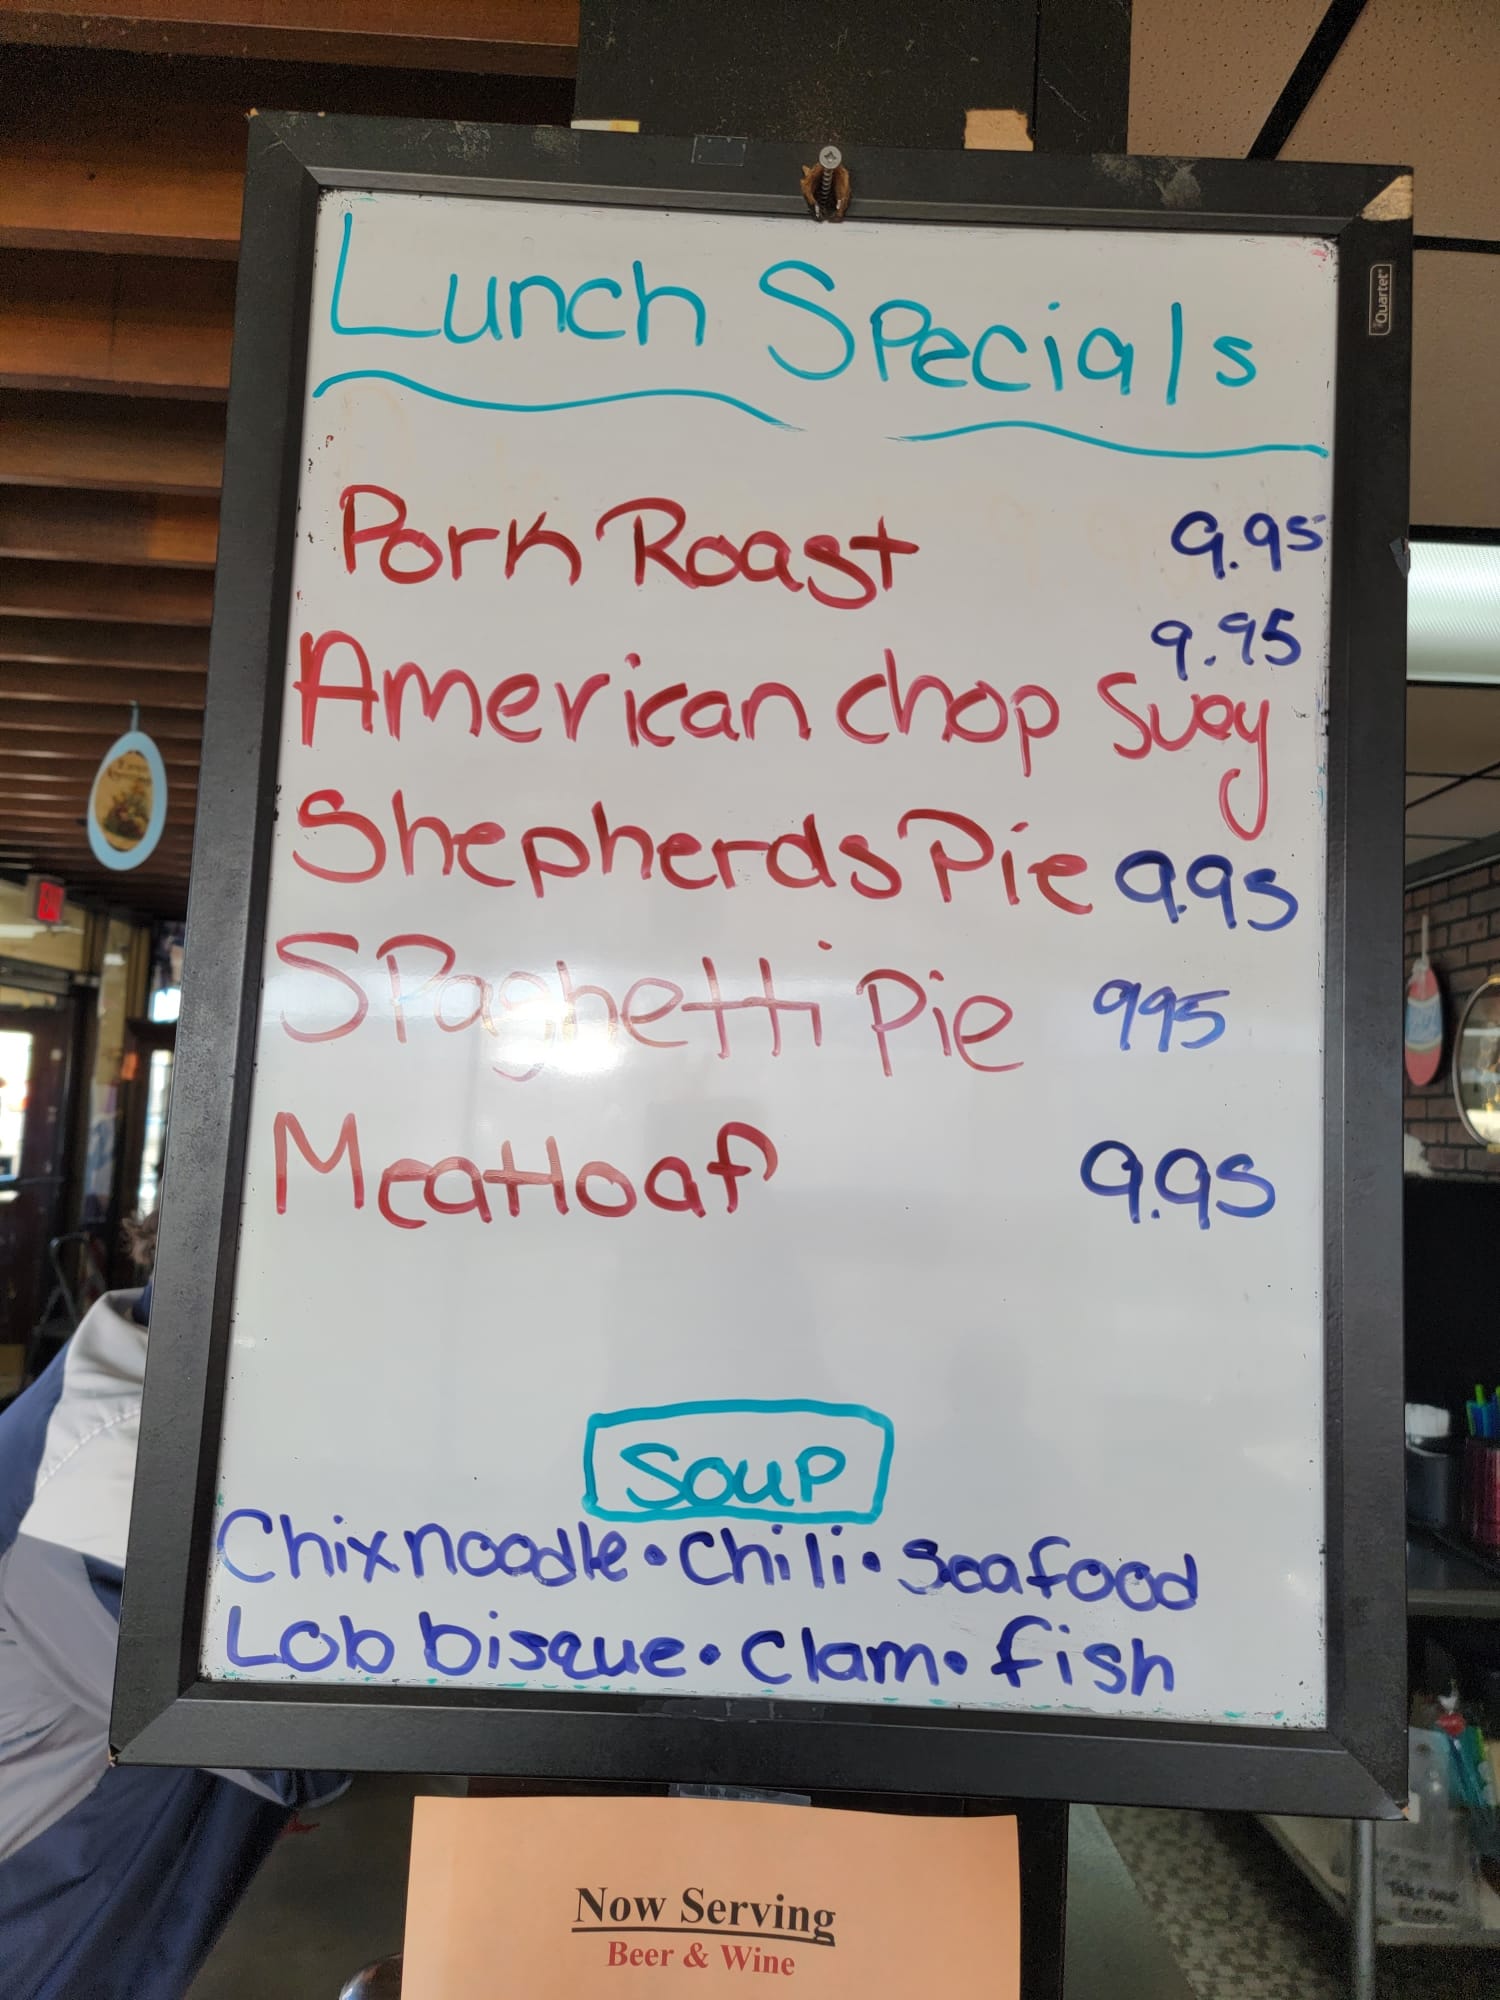 Quartet
Lunch Specials
Pork Roast 9.95
American chop Suey 9.95
Shepherds Pie 9.95
Spaghetti Pie 995
Meatloaf 9.95
Soup
Chix noodle • Chili • Seafood
Lob bisque • Clam • fish
Now Serving
Beer & Wine